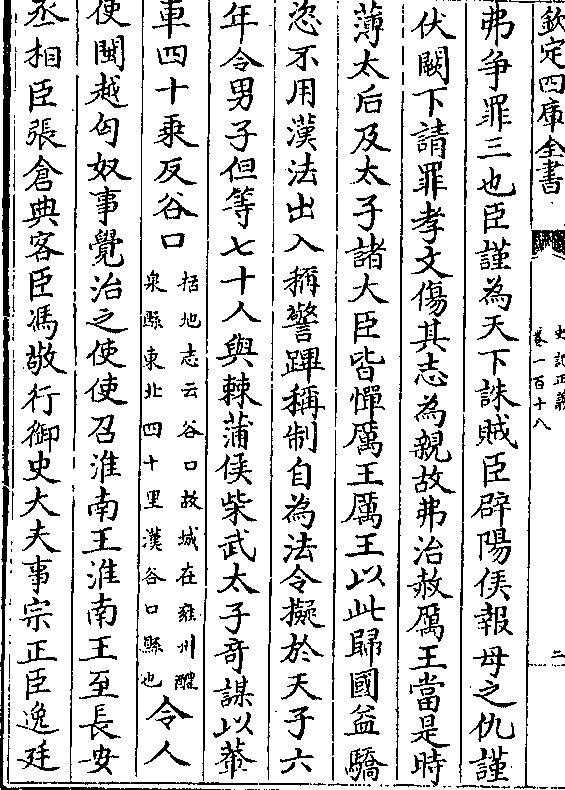 欽定四庫全書
史記正義
卷一百十八
二
弗争罪三也臣謹為天下誅賊臣辟陽侯報母之仇謹
伏闕下請罪孝文傷其志為親故弗治赦厲王當是時
薄太后及太子諸大臣皆憚厲王厲王以此歸國益驕
恣不用漢法出入稱警蹕稱制自為法令擬於天子六
年令男子但等七十人與棘蒲侯柴武太子竒謀以輂
車四十乗反谷口括地志云谷口故城在雍州醴泉縣東北四十里漢谷口縣也令人
使閩越匈奴事覺治之使使召淮南王淮南王至長安
丞相臣張倉典客臣馮敬行御史大夫事宗正臣逸廷